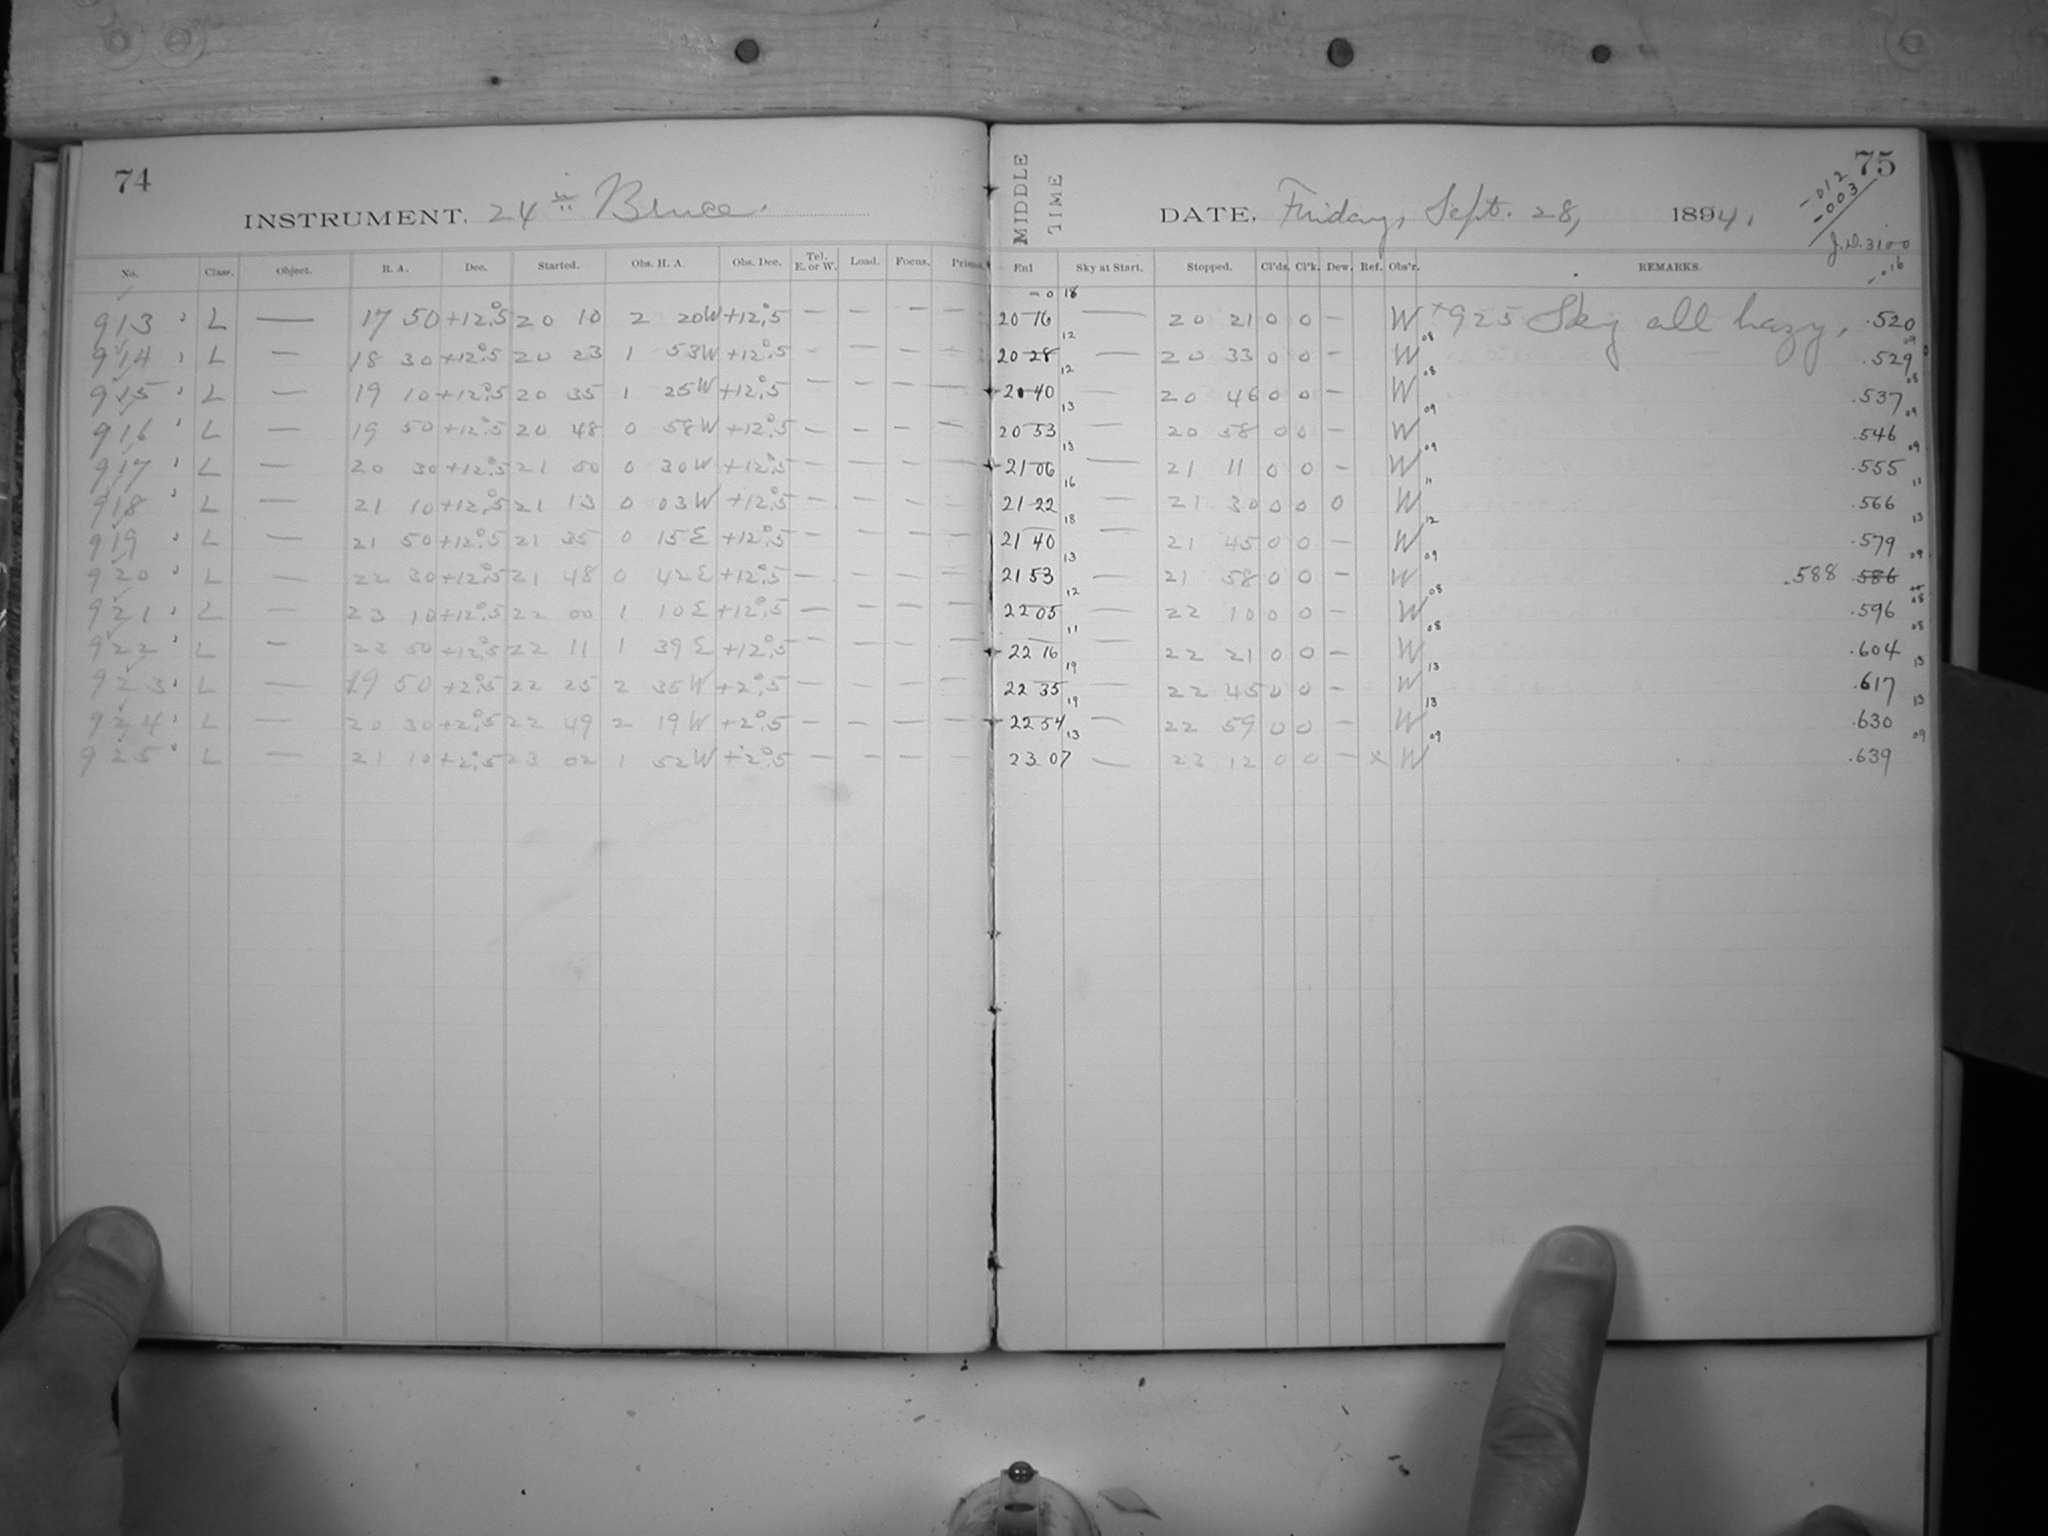 74
INSTRUMENT, 24 in Bruce.
No. Class. Object. R. A. Dec. Started. Obs. H. A. Obs. Dec. Tel. E. or W. Load. Focus.
913 L — 17 50 +12°.5 20 10 2 20W +12°.5 — — — —
914 L — 18 30 +12°.5 20 23 1 53W +12°.5 — — — —
915 L — 19 10 +12°.5 20 35 1 25W +12°.5 — — — —
916 L — 19 50 +12°.5 20 48 0 58W +12°.5 — — — —
917 L — 20 30 +12°.5 21 00 0 30W +12°.5 — — — —
918 L — 21 10 +12°.5 21 13 0 03W +12°.5 — — — —
919 L — 21 50 +12°.5 21 35 0 15E +12°.5 — — — —
920 L — 22 30 +12°.5 21 48 0 42E +12°.5 — — — —
921 L — 23 10 +12°.5 22 00 1 10E +12°.5 — — — —
922 L — 23 50 +12°.5 22 11 1 39E +12°.5 — — — —
923 L — 19 50 +2°.5 22 25 2 35W +2°.5 — — — —
924 L — 20 30 +2°.5 22 49 2 19W +2°.5 — — — —
925 L — 21 10 +2°.5 23 02 1 52W +2°.5 — — — —
75
MIDDLE TIME
DATE, Friday, Sept. 28, 1894.
-012
-003
J.D. 3100
-.016
Sky at Start. Stopped. Cl'ds. Cl'k. Dew. Ref. Obs'r. REMARKS.
-0 18
20 16 — 20 21 0 0 — W ×925 Sky all hazy. .520
12 08 09
20 28 — 20 33 0 0 — W .529
12 08 08
20 40 — 20 46 0 0 — W .537
13 09 09
20 53 — 20 58 0 0 — W .546
13 09 09
21 06 — 21 11 0 0 — W .555
16 11 11
21 22 — 21 30 0 0 0 W .566
18 12 13
21 40 — 21 45 0 0 — W .579
13 09 09
21 53 — 21 58 0 0 — W .588 .586
12 08 08
22 05 — 22 10 0 0 — W .596
11 08 08
22 16 — 22 21 0 0 — W .604
19 13 13
22 35 — 22 45 0 0 — W .617
19 13 13
22 54 — 22 59 0 0 — W .630
13 09 09
23 07 — 23 12 0 0 — × W .639